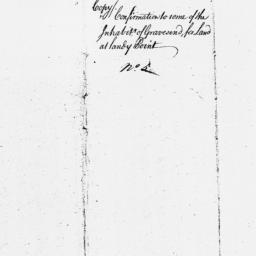 Copy/.
Confirmation to some of the
Inhabitts of Gravesend, for Land
at Sandy Point
No